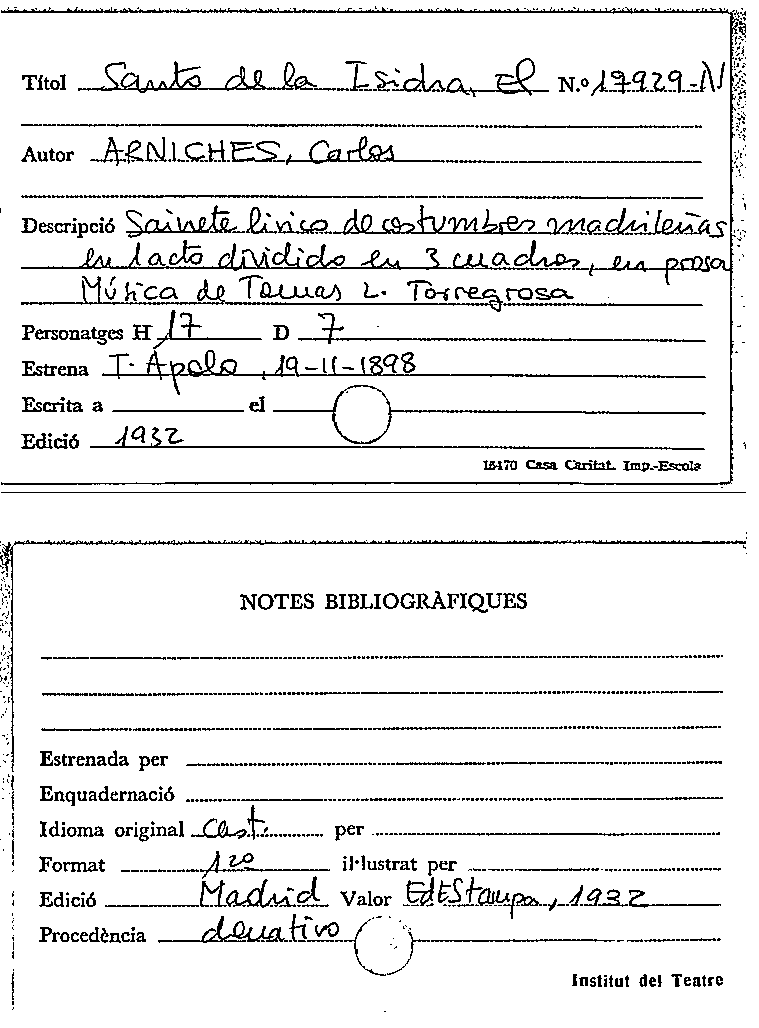 Títol Santo de la Isidra, El N.º 17929-N
Autor ARNICHES, Carlos
Descripció Sainete lírico de costumbres madrileñas
en 1 acto dividido en 3 cuadros, en prosa
Música de Tomas L. Torregrosa
Personatges H 17 D 7
Estrena T. Ápolo, 19-II-1898
Escrita a el
Edició 1932
15470 Casa Caritat. Imp.-Escola
NOTES BIBLIOGRÀFIQUES
Estrenada per
Enquadernació
Idioma original Cast. per
Format 12º il·lustrat per
Edició Madrid Valor Ed EStampa, 1932
Procedència donativo
Institut del Teatre